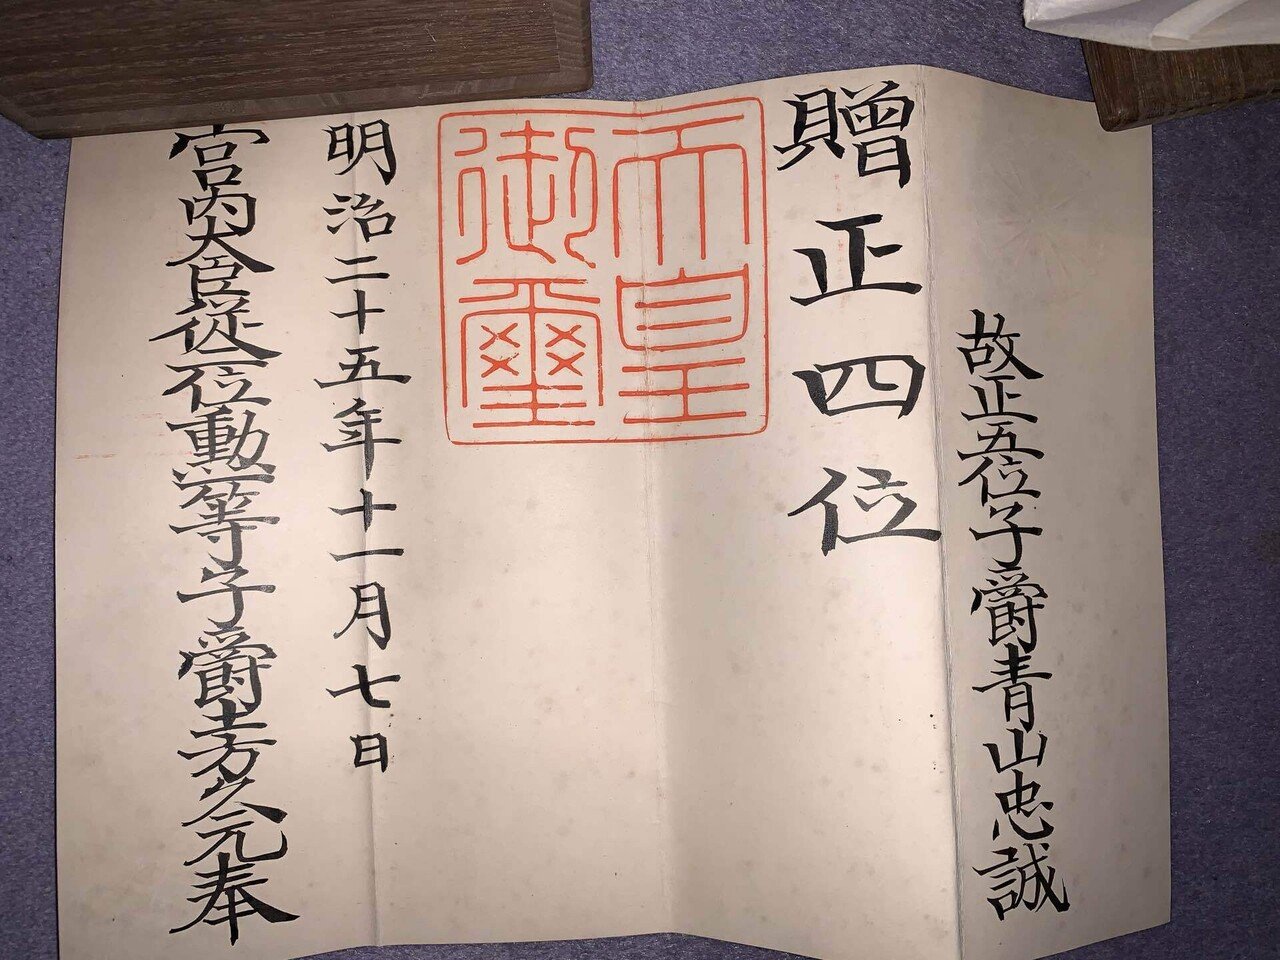 故正五位子爵青山忠誠
贈正四位
天皇
御璽
明治二十五年十一月七日
宮内大臣従一位勲一等子爵土方久元奉